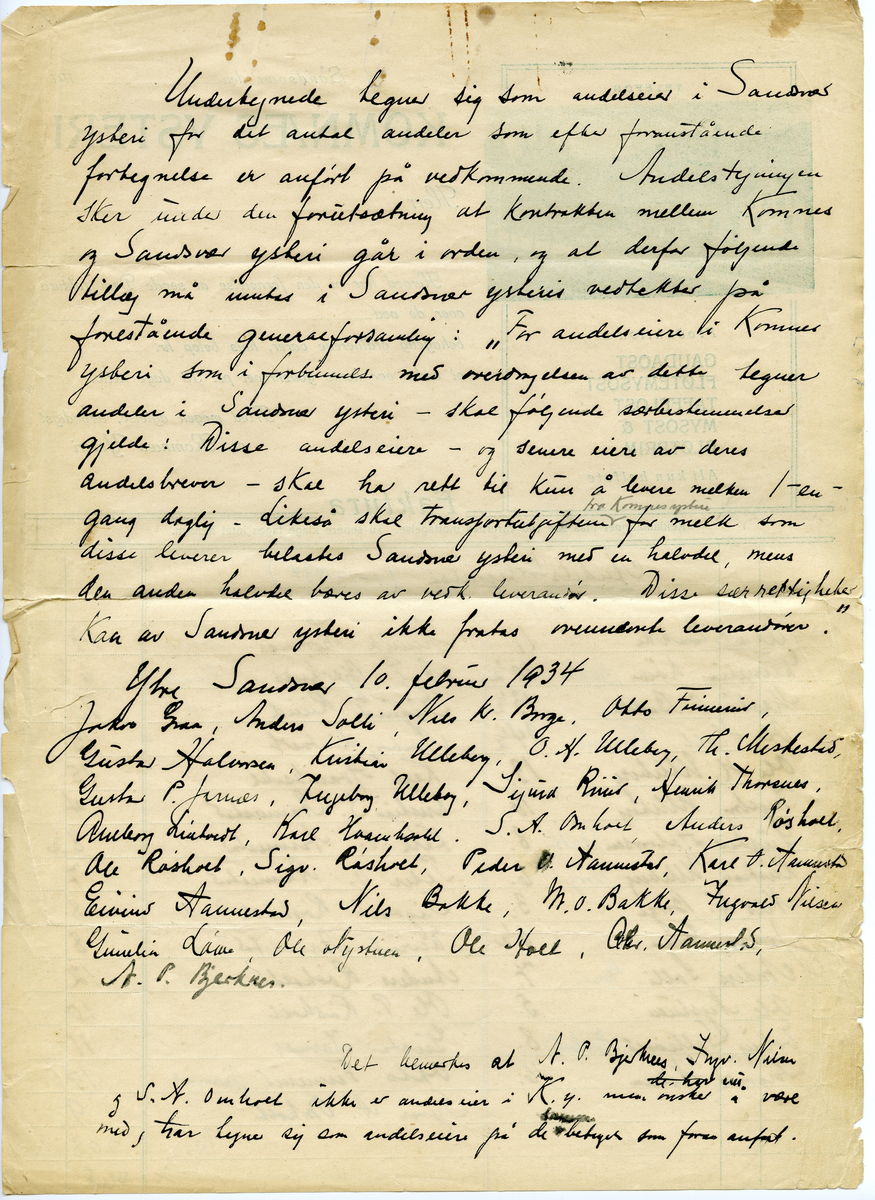 Undertegnede tegner sig som andelseier i Sandsvær
ysteri for det antal andeler som efter foranstående
fortegnelse er anført på vedkommende. Andelstegningen
sker under den forutsætning at kontrakten mellem Komnes
og Sandsvær ysteri går i orden, og at derfor følgende
tillæg må inntas i Sandsvær ysteris vedtekter på
forestående generalforsamling: „For andelseiere i Komnes
ysteri som i forbinnelse med overdragelsen av dette tegner
andeler i Sandsvær ysteri – skal følgende særbestemmelser
gjelde: Disse andelseiere – og senere eiere av deres
andelsbrever – skal ha rett til kun å levere melken 1-en-
fra Komnes ysteri
gang daglig – Likeså skal transportutgiftene for melk som
disse leverer belastes Sandsvær ysteri med en halvdel, mens
den anden halvdel bæres av vedk. leverandør. Disse særrettigheter
kan av Sandsvær ysteri ikke fratas ovennevnte leverandører."
Ytre Sandsvær 10. februar 1934
Jakob Graa, Anders Solli, Nils Kr. Borge, Otto Finnerud,
Gustav Halvorsen, Kristian Ulleberg, O. H. Ulleberg, Th. Meskestad,
Gustav P. Jarnæs, Ingeborg Ulleberg, Sigurd Ruud, Henrik Thorsnes,
Anlberg Lintvedt, Karl S. A. Omholt, Anders Røsholt,
Ole Røsholt, Sigv. Røsholt, Peder O. Aannestad, Karl O. Aannestad
Eivind Aannestad, Nils Bakke, M. O. Bakke, Ingvald Nilsen
Gunelia Ole Nystuen, Ole Holt, Chr. Aannestad,
A. P. Bjerknes.
Det bemerkes at A. P. Bjerknes, Ingv. Nilsen
de har
og S. A. Omholt ikke er andelseier i K. y. men ønsker å være
med, har tegne sig som andelseiere på de betingelser som foran anført.
GAUDAOST
FLØTEMYSOST
MYSOST &